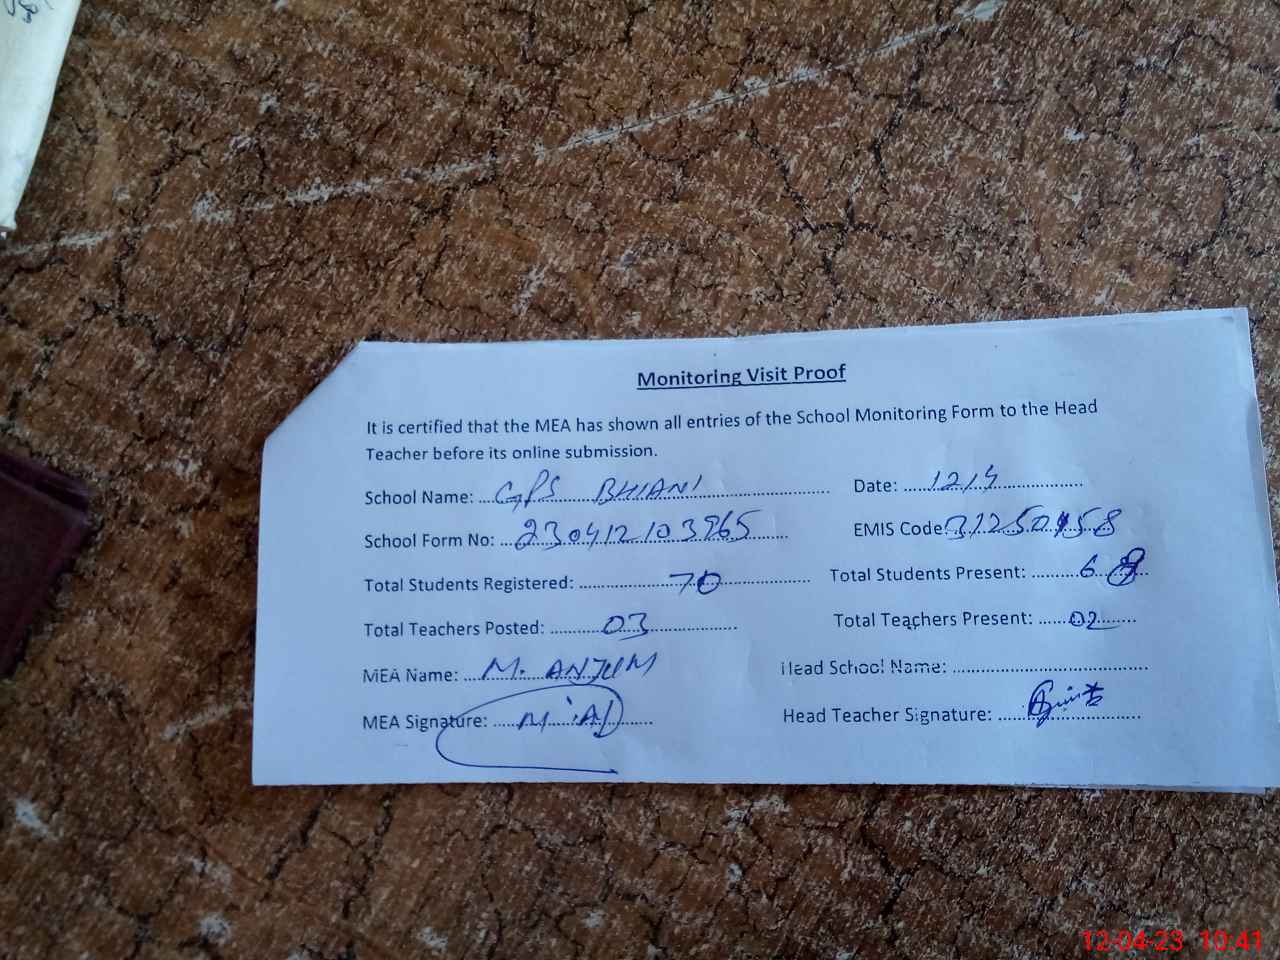 Monitoring Visit Proof
It is certified that the MEA has shown all entries of the School Monitoring Form to the Head
Teacher before its online submission.
School Name: GPS BHIANI Date: 12/4
School Form No: 230412103965 EMIS Code
Total Students Registered: 70 Total Students Present:
Total Teachers Posted: 03 Total Teachers Present: 02
MEA Name: M. ANJUM Head School Name:
MEA Signature: Head Teacher Signature:
12-04-23 10:41